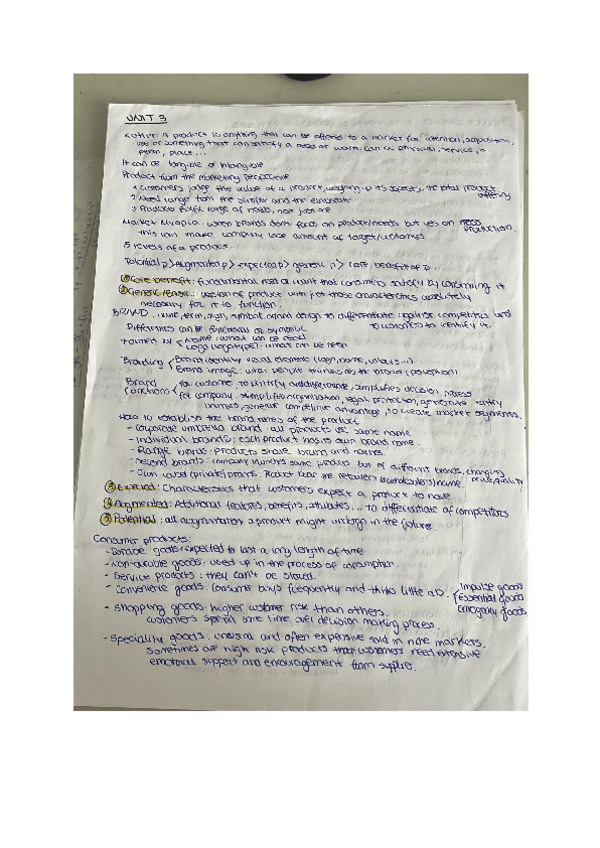 UNIT 3
Kotler: A product is anything that can be offered to a market for attention, acquisition,
use or something that can satisfy a need or want. Can be physical, service,
person, place...
It can be tangible or intangible
Product from the marketing perspective
Customers judge the value of a product, weighing up its the total product offering
2 Need range from the similar and the
3 Products fulfil range of needs, not just one
Market Myopia: when brands don't focus on product/needs but yes on mass production,
this can make company lose amount of target/customers
5 levels of a product.
Potential p > Augmented p > expected p > generic p > core benefit of p.
① Core benefit: fundamental need or want that consumers satisfy by consuming it
② Generic: version of product with just those characteristics absolutely
necessary for it to function.
BRAND: name, term, sign, symbol and design to differentiate against competitors and
to customers to identify it.
Differences can be functional or symbolic
Formed by Name: what can be read
Logo (logotype): what can be seen
Branding Brand identity: visual elements (logo, name, colours...)
Brand image: what people think about the brand (perception)
Brand functions for customer: to identify and differentiate, simplifies decision process
for company: simplifies organisation, legal protection, generate
generate competitive advantage, to create market segments.
How to establish the brand names of the product
- Corporate umbrella brand: all products use same name
- Individual brands: each product has its own brand name.
- Range brands: products share brand and names
- Second brands: company launches same product but of different brands, changing price/quality
- Own label (private) brands: Product bear the retailers name
③ Expected: Characteristics that customers expect a product to have
④ Augmented: Additional features, benefits, attributes... to differentiate of competitors
⑤ Potential: all augmentation a product might undergo in the future
Consumer products:
- Durable goods: expected to last a long length of time
- Non-durable goods: used up in the process of consumption.
- Service products: they can't be stored.
- Convenience goods: consumer buys frequently and thinks little Impulse goods
Essential goods
Emergency goods
- Shopping goods: higher customer risk than others.
customers spend some time over decision making process.
- Speciality goods: unusual and often expensive sold in niche markets.
sometimes are high risk products that customers need extensive
emotional support and encouragement from supplier.